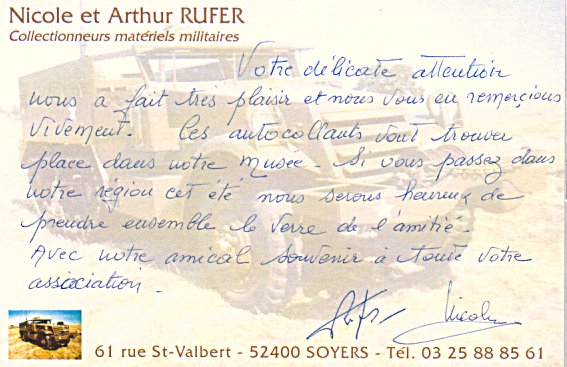 Nicole et Arthur RUFER
Collectionneurs matériels militaires
Votre délicate attention
nous a fait très plaisir et nous vous en remerçions
vivement. Ces autocollants vont trouver
place dans notre Musée. Si vous passez dans
notre région cet été nous serons heureux de
prendre ensemble le verre de l'amitié.
Avec notre amical souvenir à toute votre
association.
Nicole
61 rue St-Valbert - 52400 SOYERS - Tél. 03 25 88 85 61